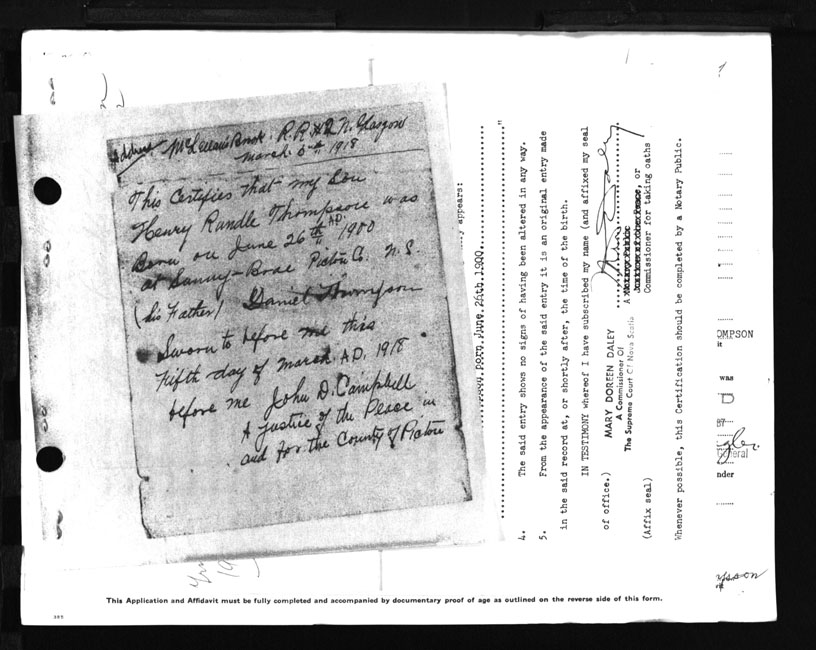 Address McLellan's Brook. R.R.#2 N. Glasgow
March 5th 1918
This Certifies that my Son
Henry Randle Thompson was
Born on June 26th A.D. 1900
at Sunny-Brae Pictou Co. N.S.
(his Father) Daniel Thompson
Sworn to before me this
Fifth day of March A.D. 1918
before me John D. Campbell
A Justice of the Peace in
and for the County of Pictou
appears:
Born June 26th. 1900.
"
4. The said entry shows no signs of having been altered in any way.
5. From the appearance of the said entry it is an original entry made
in the said record at, or shortly after, the time of the birth.
IN TESTIMONY whereof I have subscribed my name (and affixed my seal
of office.)
MARY DOREEN DALEY
A Commissioner Of
The Supreme Court Of Nova Scotia
A Notary Public
Justice of the Peace, or
Commissioner for taking oaths
(Affix seal)
Whenever possible, this Certification should be completed by a Notary Public.
OMPSON
it
was
D
87
General
nder
This Application and Affidavit must be fully completed and accompanied by documentary proof of age as outlined on the reverse side of this form.